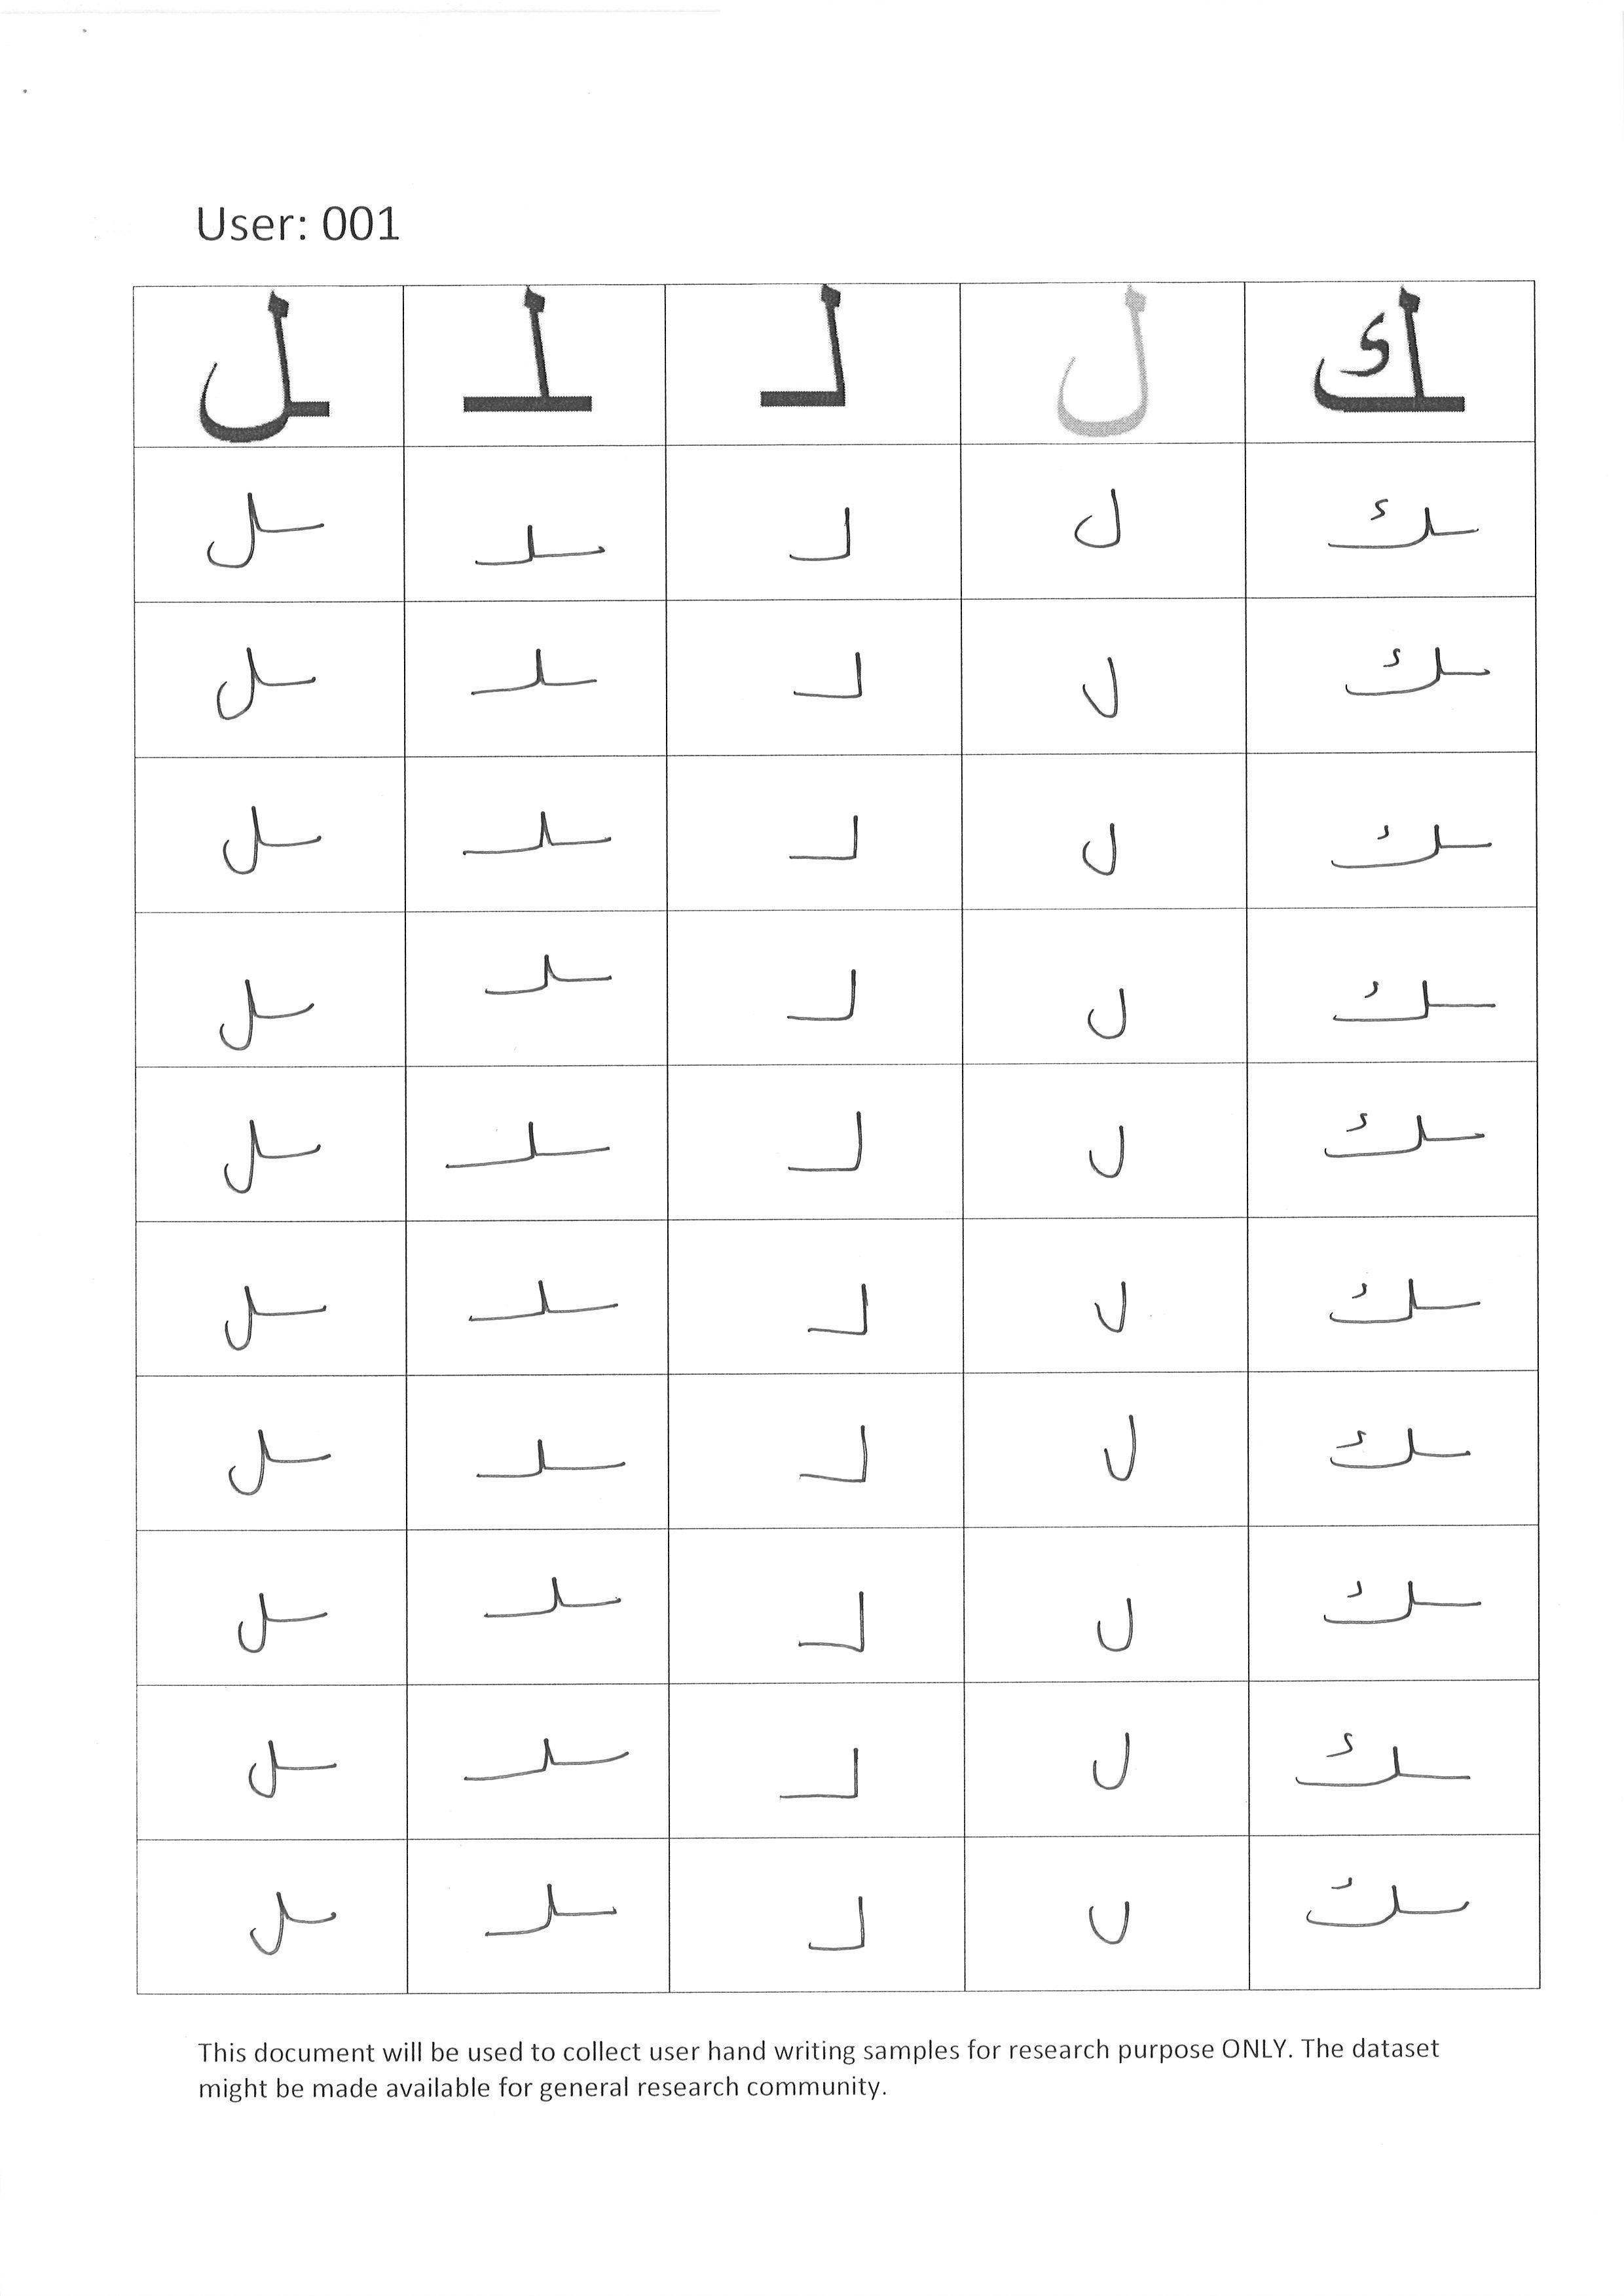 User: 001
ـل ـلـ لـ ل ـك
ـل ـلـ لـ ل ـك
ـل ـلـ لـ ل ـك
ـل ـلـ لـ ل ـك
ـل ـلـ لـ ل ـك
ـل ـلـ لـ ل ـك
ـل ـلـ لـ ل ـك
ـل ـلـ لـ ل ـك
ـل ـلـ لـ ل ـك
ـل ـلـ لـ ل ـك
ـل ـلـ لـ ل ـك
This document will be used to collect user hand writing samples for research purpose ONLY. The dataset
might be made available for general research community.